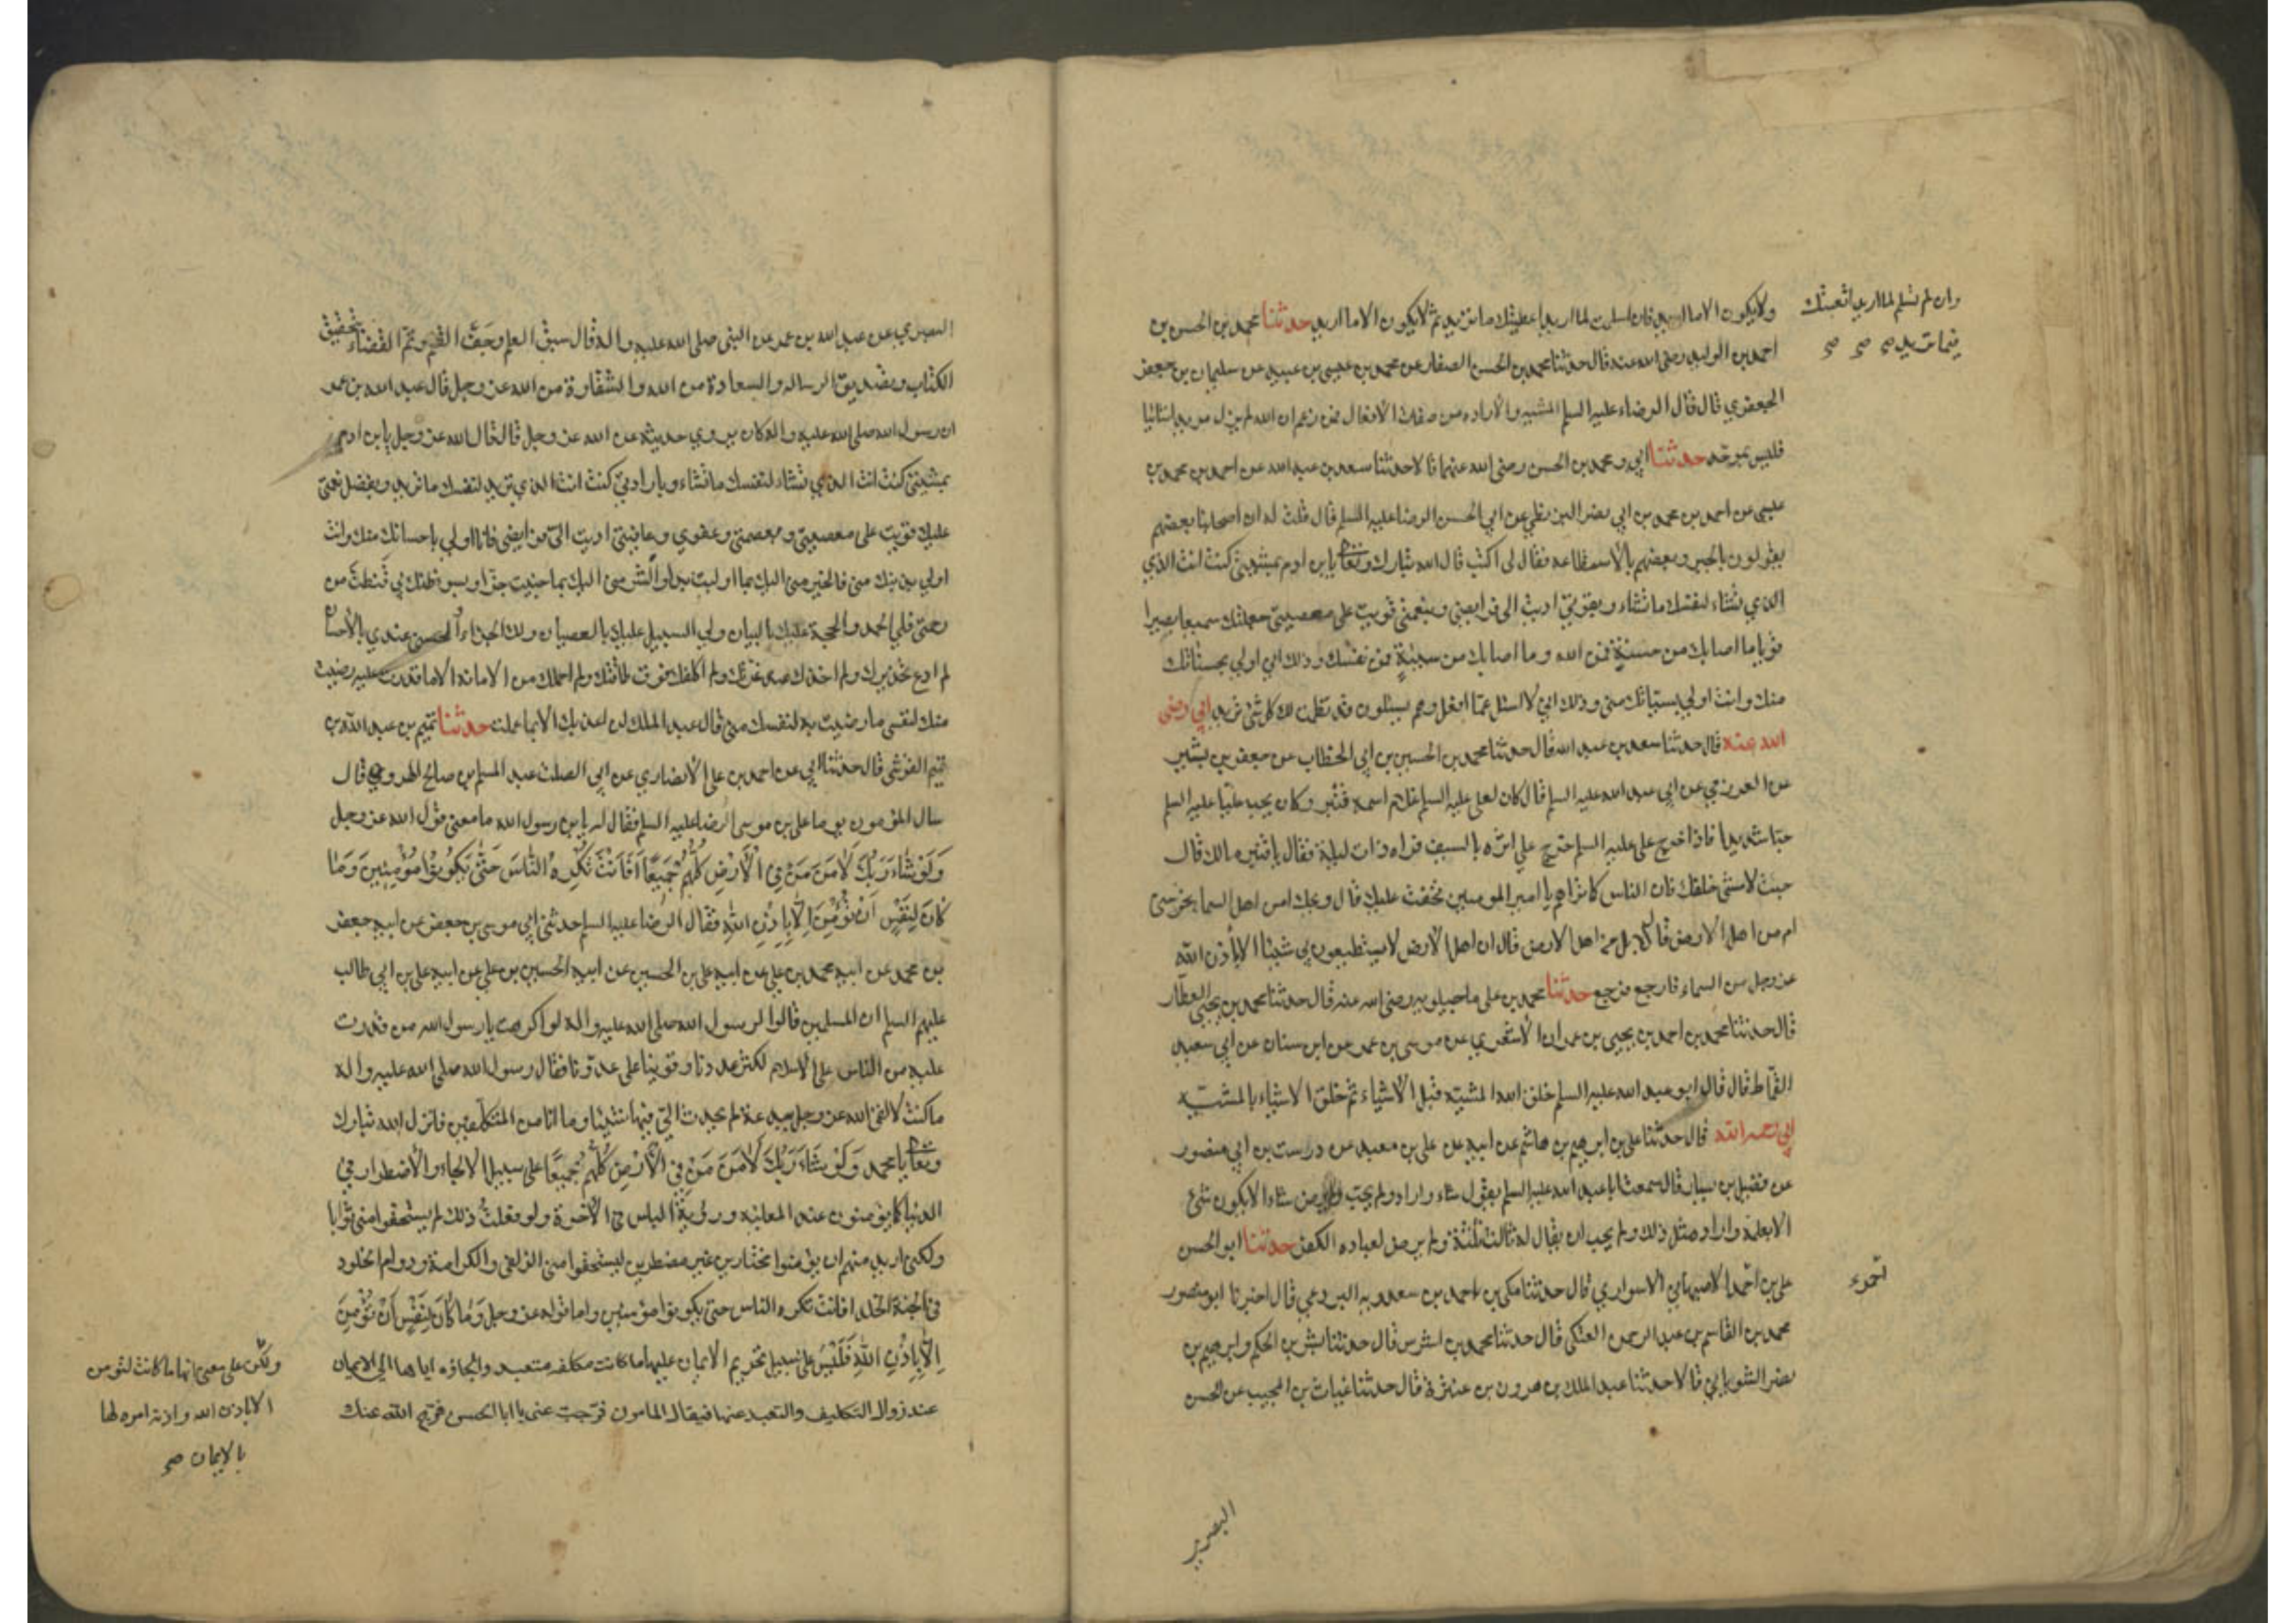 ولا يكون الا ما اريد فان اسلمت لما اريد اعطيتك ما تريد ثم لا يكون الا ما اريد حدثنا محمد بن الحسن بن
وان لم تسلم لما اريد اتعبتك
فيما تريد صح صح صح
احمد بن الوليد رضى الله عنه قال حدثنا محمد بن الحسن الصفار عن محمد بن عيسى بن عبيد عن سليمان بن جعفر
الجعفري قال قال الرضاء عليه السلم المشيه والاراده من صفات الافعال فمن زعم ان الله لم يزل مريدا شائيا
فليس بموحد حدثنا ابي ومحمد بن الحسن رضى الله عنهما قالا حدثنا سعد بن عبد الله عن احمد بن محمد بن
عيسى عن احمد بن محمد بن ابي نصر البزنطي عن ابي الحسن الرضا عليه السلم قال قلت له ان اصحابنا بعضهم
يقولون بالجبر وبعضهم بالاستطاعه فقال لى اكتب قال الله تبارك وتعالى يا بن ادم بمشيتي كنت انت الذي
الذي تشاء لنفسك ما تشاء وبقوتي اديت الى فرايضي وبنعمتي قويت على معصيتي جعلتك سميعا بصيرا
قويا ما اصابك من حسنة فمن الله وما اصابك من سيئة فمن نفسك وذلك اني اولى بحسناتك
منك وانت اولى بسيئاتك منى وذلك انى لا اسئل عما افعل وهم يسئلون وقد نظمت لك كل شئ تريد ابي رضى
الله عنه قال حدثنا سعد بن عبد الله قال حدثنا محمد بن الحسين بن ابي الخطاب عن جعفر بن بشير
عن العرزمي عن ابي عبد الله عليه السلم قال كان لعلى عليه السلم غلام اسمه قنبر وكان يحب عليا عليه السلم
حبا شديدا فاذا خرج على عليه السلم خرج على اثره بالسيف فراه ذات ليلة فقال يا قنبر مالك قال
جئت لامشى خلفك فان الناس كما تراهم يا امير المومنين فخفت عليك قال ويحك امن اهل السما تحرسنى
ام من اهل الارض قال لا بل من اهل الارض قال ان اهل الارض لا يستطيعون بي شيئا الا باذن الله
عز وجل من السماء فارجع فرجع حدثنا محمد بن على ماجيلويه رضى الله عنه قال حدثنا محمد بن يحيى العطار
قال حدثنا محمد بن احمد بن يحيى بن عمران الاشعري عن موسى بن عمر عن ابن سنان عن ابي سعيد
القماط قال قال ابو عبد الله عليه السلم خلق الله المشيه قبل الاشياء ثم خلق الاشياء بالمشيه
ابي رحمه الله قال حدثنا على بن ابرهيم بن هاشم عن ابيه عن على بن معبد عن درست بن ابي منصور
عن فضيل بن يسار قال سمعت ابا عبد الله عليه السلم يقول شاء واراد ولم يحب ولم يرض شاء الا يكون شئ
الا بعلمه واراد مثل ذلك ولم يحب ان يقال له ثالث ثلثة ولم يرض لعباده الكفر حدثنا ابو الحسن
على بن احمد الاصبهاني الاسواري قال حدثنا مكى بن احمد بن سعدويه البردعي قال اخبرنا ابو منصور
محمد بن القاسم بن عبد الرحمن العتكى قال حدثنا محمد بن اشرس قال حدثنا بشر بن الحكم وابرهيم بن
نصر السورياني قالا حدثنا عبد الملك بن هرون بن عنترة قال حدثنا غياث بن المجيب عن الحسن
البصري
البصري عن عبد الله بن عمر عن النبى صلى الله عليه واله قال سبق العلم وجف القلم وتم القضاء بتحقيق
الكتاب وتصديق الرساله والسعادة من الله والشقاوة من الله عز وجل قال عبد الله بن عمر
ان رسول الله صلى الله عليه واله كان يروي حديثه عن الله عز وجل قال قال الله عز وجل يا بن ادم
بمشيتى كنت انت الذي تشاء لنفسك ما تشاء وبارادتي كنت انت الذي تريد لنفسك ما تريد وبفضل نعمتى
عليك قويت على معصيتى وبعصمتى وعفوي وعافيتى اديت الى فرايضى فانا اولى باحسانك منك وانت
اولى بذنبك منى فالخير منى اليك بما اوليت بدا والشر منى اليك بما جنيت جزا وبسوء ظنك بي قنطت من
رحمتى فلى الحمد والحجة عليك بالبيان ولى السبيل عليك بالعصيان ولك الجزاء الحسنى عندي بالاحسان
لم ادع تحذيرك ولم اخذك عند غرتك ولم اكلفك فوق طاقتك ولم احملك من الامانه الا ما قدرت عليه رضيت
منك لنفسى ما رضيت به لنفسك منى قال عبد الملك لن اعذبك الا بما عملت حدثنا تميم بن عبد الله بن
تميم القرشى قال حدثنا ابي عن احمد بن على الانصاري عن ابي الصلت عبد السلم بن صالح الهروي قال
سال المؤمون يوما على بن موسى الرضا عليه السلم فقال له يا بن رسول الله ما معنى قول الله عز وجل
وَلَوْ شَاءَ رَبُّكَ لَآمَنَ مَنْ فِي الْأَرْضِ كُلُّهُمْ جَمِيعًا أَفَأَنْتَ تُكْرِهُ النَّاسَ حَتَّى يَكُونُوا مُؤْمِنِينَ وَمَا
كَانَ لِنَفْسٍ أَنْ تُؤْمِنَ إِلَّا بِإِذْنِ اللَّهِ فقال الرضا عليه السلم حدثنى ابي موسى بن جعفر عن ابيه جعفر
بن محمد عن ابيه محمد بن على عن ابيه على بن الحسين عن ابيه الحسين بن على عن ابيه على بن ابي طالب
عليهم السلم ان المسلمين قالوا لرسول الله صلى الله عليه واله لو اكرهت يا رسول الله من قدرت
عليه من الناس على الاسلام لكثر عددنا وقوينا على عدونا فقال رسول الله صلى الله عليه واله
ما كنت لالقى الله عز وجل ببدعة لم يحدث الى فيها شيئا وما انا من المتكلفين فانزل الله تبارك
وتعالى يا محمد وَلَوْ شَاءَ رَبُّكَ لَآمَنَ مَنْ فِي الْأَرْضِ كُلُّهُمْ جَمِيعًا على سبيل الالجاء والاضطرار في
الدنيا كما يؤمنون عند المعاينه ورؤية الباس في الاخرة ولو فعلت ذلك لم يستحقوا منى ثوابا
ولكنى اريد منهم ان يؤمنوا مختارين غير مضطرين ليستحقوا منى الزلفى والكرامة ودوام الخلود
فى الجنة الخلد افانت تكره الناس حتى يكونوا مؤمنين واما قوله عز وجل وَمَا كَانَ لِنَفْسٍ أَنْ تُؤْمِنَ
إِلَّا بِإِذْنِ اللَّهِ فَلَيْسَ على سبيل تحريم الايمان عليها
ولكن على معنى انها ما كانت لتؤمن
الا باذن الله واذنه امره لها
بالايمان صح
ما كانت مكلفه متعبد والجاؤه اياها الى الايمان
عند زوال التكليف والتعبد عنها فقال المامون فرجت عنى يا ابا الحسن فرج الله عنك